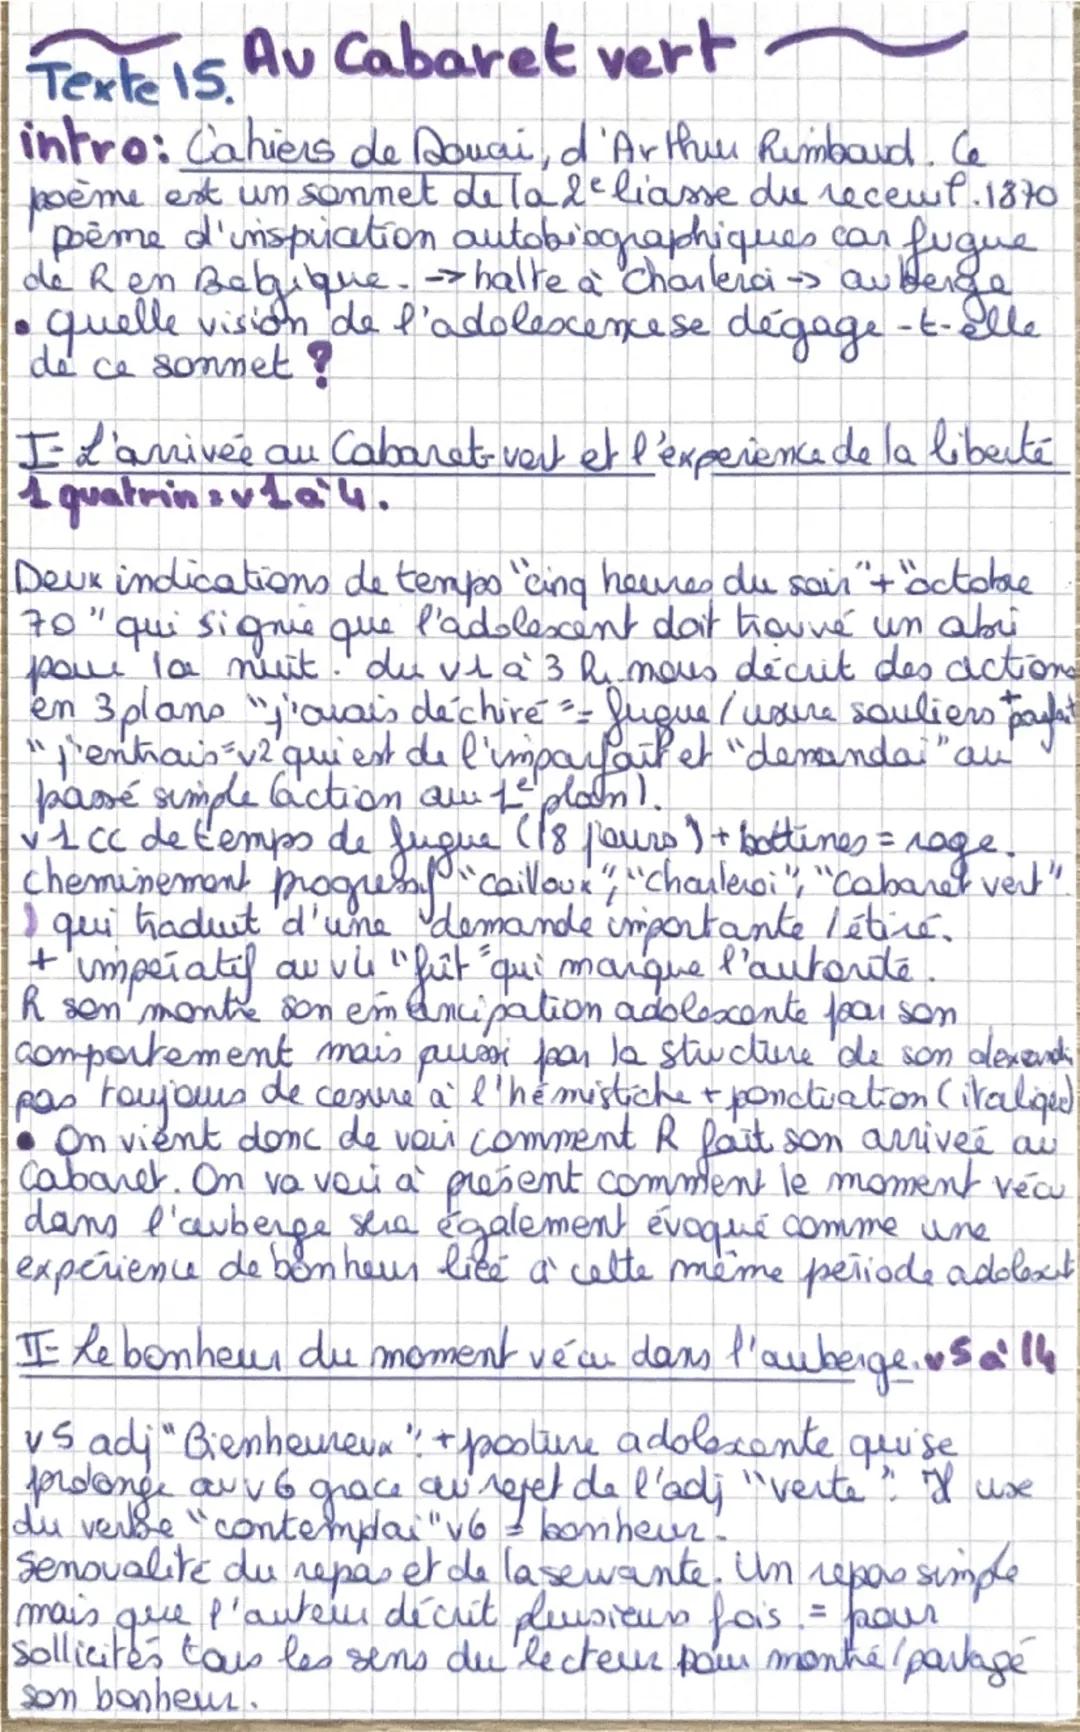 Au Cabaret vert
Texte 15.
intro: Cahiers de Douai, d'Arthur Rimbaud. Ce
poème est un sonnet de la 2e liasse du receuil. 1870
poème d'inspiration autobiographiques car fugue
de R en Belgique. -> halte à Charleroi -> auberge
• quelle vision de l'adolescence se dégage-t-elle
de ce sonnet ?
I- L'arrivée au Cabaret-vert et l'expérience de la liberté
1 quatrin : v1 à 4.
Deux indications de temps "cinq heures du soir" + "octobre
70" qui signie que l'adolescent doit trouvé un abri
pour la nuit. du v1 à 3 R. nous décrit des actions
en 3 plans "j'avais déchiré" = fugue / usure souliers + parfait
"j'entrais" v2 qui est de l'imparfait et "demandai" au
passé simple (action au 1e plan).
v1 cc de temps de fugue ("8 jours") + bottines = rage.
cheminement progressif "cailloux", "charleroi", "Cabaret vert".
) qui traduit d'une demande importante / étiré.
+ impératif au v4 "fût" qui marque l'autorité.
R son montre son émancipation adolescente par son
comportement mais aussi par la structure de son alexandri
pas toujours de cesure à l'hémistiche + ponctuation (italique)
• On vient donc de voir comment R fait son arriveé au
Cabaret. On va voir à présent comment le moment vécu
dans l'auberge sera également évoqué comme une
expérience de bonheur liée à cette même période adolescent
II- Le bonheur du moment vécu dans l'auberge. v5 à 14
v5 adj "Bienheureux" + posture adolescente qui se
prolonge au v6 grace au rejet de l'adj "verte". Il use
du verbe "contemplai" v6 = bonheur.
Sensualité du repas et de la servante. Un repas simple
mais que l'auteur décrit plusieurs fois. = pour
sollicités tous les sens du lecteur pour montré/partagé
son bonheur.